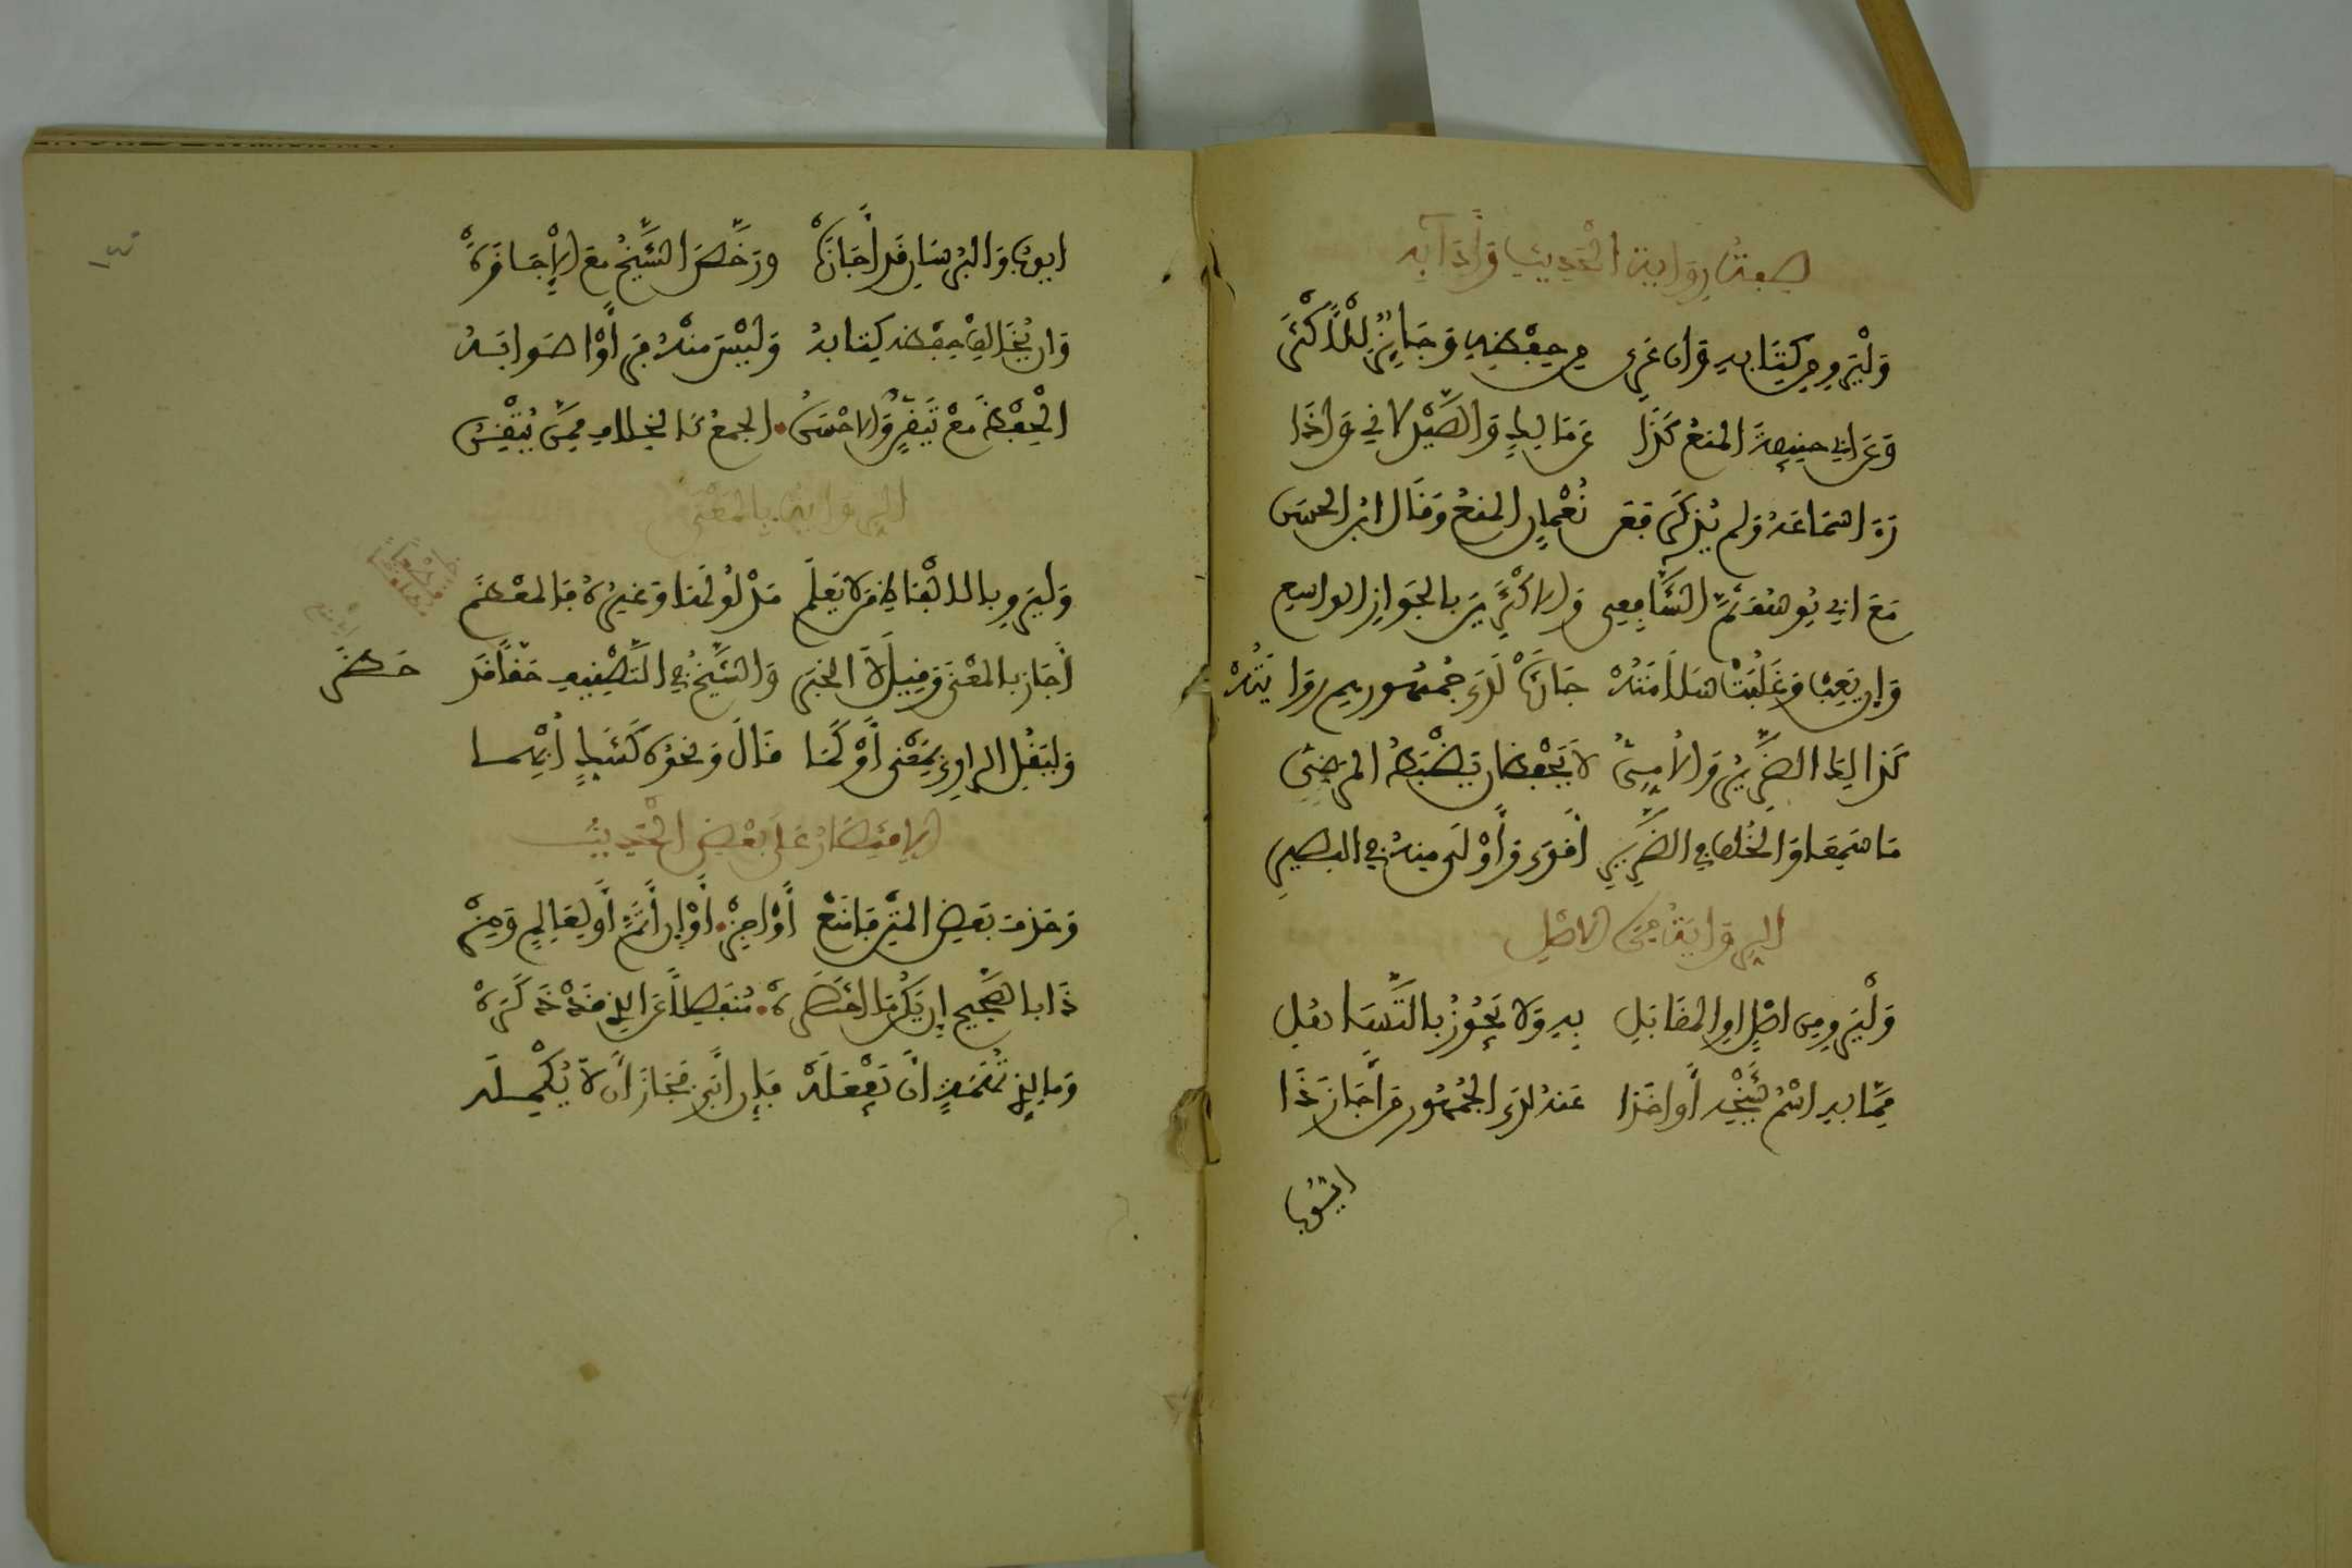 صفة رواية الحديث وأدائه
وَلْيَرْوِ من كِتَابِهِ وان عَرِي من حِفْظِهِ فَجَائِزٌ لِلْأَكْثَرِ
وَعَن ابي حنيفة المنع كَذَا عن مالِكٍ وَالصَّيْدلاني وَإذَا
رَءَا سَمَاعَهُ ولم يُذكَر فعن نُعْمانٍ المنعُ وَقَال ابن الحسن
مَعَ ابي يوسف ثمَّ الشَّافِعِي وَالاكْثَرِينَ بالجَوازِ الواسعِ
وَإن يَغِب وَغَلَبَتْ سَلَامَتُهْ جَازَتْ لَدَى جُمْهورهم رِوَايَتُهْ
كَذَلِكَ الضَّرِيرُ وَالأُمِيُّ لاَ يَحْفَظانِ يَضْبِطُ المرضِيُّ
مَا سَمِعَا وَالخُلف في الضَّرِيرِ أَقوَى وَأَوْلَى مِنهُ في البصيرِ
الرِوَايةُ مِنَ الاصْلِ
وَلْيَرْوِ مِن اصْلٍ او المقَابَلِ بِهِ وَلا يَجُوزُ بالتَّسَاهلِ
مِمَّا بِهِ اسْمُ شَيْخِهِ أو اخَذا عَنهُ لدَى الجُمْهُورِ وَأَجَازَ ذَا
ايُّوبُ
ايوبُ وَالبُرسَانِ قد أجَازَهْ ورَخَّصَ الشَّيْخُ مَعَ الإجَازَهْ
وَان يُخَالِف حِفْظه كِتَابهُ وَلَيْسَ منهُ فَرَأَوْا صَوابَهُ
الْحِفْظَ مَعْ تَيَقُّنٍ وَالاحْسَنُ الجمعُ كَالخِلافِ مِمَّن يُتْقِنُ
الرِوايَةُ بالمَعْنَى
وَليَرْوِ بالالْفَاظِ مَن لا يَعلَم مَدْلُولَهَا وَغيرُهُ فَالمعْظَم
أجَازَ بالمعْنَى وَقِيلَ لاَ الخبَر وَالشَّيْخُ في التَّصْنِيفِ حَقّاً قَد حَظَر
وَليَقُلِ الراوِي بِمَعْنَى أوْ كَمَا قَالَ وَنحْوه كَشَكٍّ أُبْهِما
الاِقْتِصَارُ عَلَى بَعْضِ الْحَدِيثِ
وَحَذفَ بَعضِ المتنِ فَامْنَعْ أَوْ اجِزْ أوْ إن أُتِمَّ أَو لِعَالِمٍ وَمِزْ
ذَا بالصَّحِيحِ إن يَكُن مَا اخْتَصَرَهْ مُنفَصِلاً عَنِ الذِي قَدْ ذَكَرَهْ
وَما لِذِي تُهَمَةٍ أنْ يَفْعَلَهْ فَإن أبَى فَجَازَ أنْ لاَ يُكْمِلَه
١٤٠